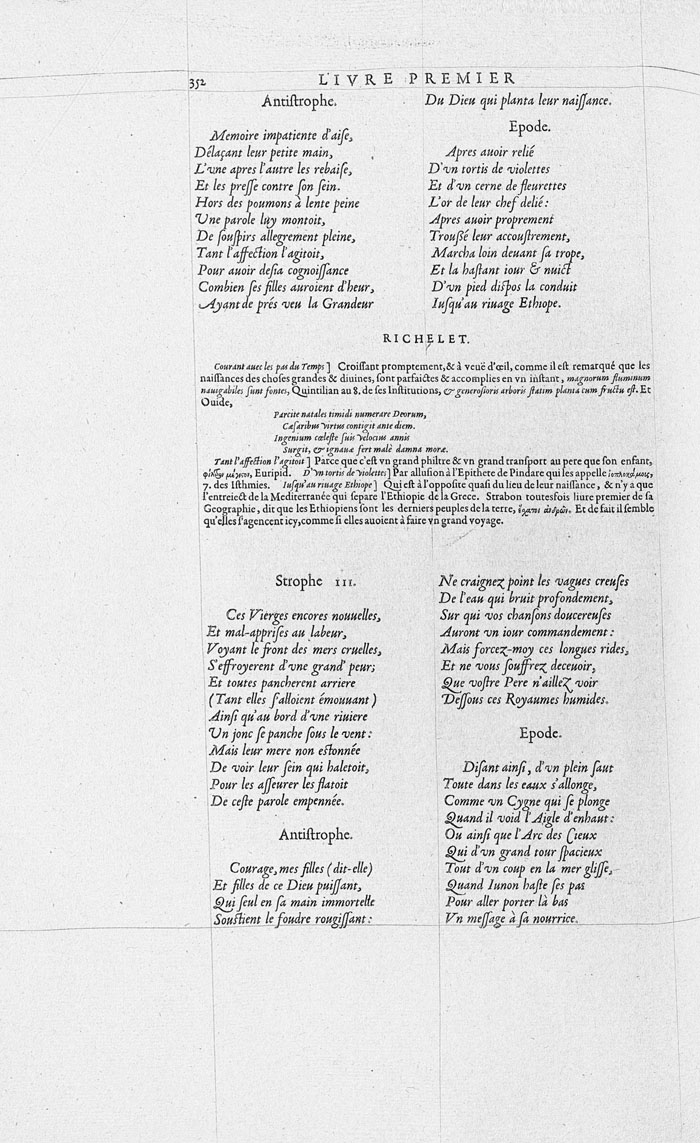 352
LIVRE PREMIER
Antistrophe.
Memoire impatiente d'aise,
Délaçant leur petite main,
L'vne apres l'autre les rebaise,
Et les presse contre son sein.
Hors des poumons à lente peine
Vne parole luy montoit,
De souspirs allegrement pleine,
Tant l'affection l'agitoit,
Pour auoir desia cognoissance
Combien ses filles auroient d'heur,
Ayant de prés veu la Grandeur
Du Dieu qui planta leur naissance.
Epode.
Apres auoir relié
D'vn tortis de violettes
Et d'vn cerne de fleurettes
L'or de leur chef delié:
Apres auoir proprement
Troussé leur accoustrement,
Marcha loin deuant sa trope,
Et la hastant iour & nuict
D'vn pied dispos la conduit
Iusqu'au riuage Ethiope.
RICHELET.
Courant auec les pas du Temps] Croissant promptement, & à veuë d'œil, comme il est remarqué que les
naissances des choses grandes & diuines, sont parfaictes & accomplies en vn instant, magnorum fluminum
nauigabiles sunt fontes, Quintilian au 8. de ses Institutions, & generosioris arboris statim planta cum fructu est. Et
Ouide,
Parcite natales timidi numerare Deorum,
Cæsaribus virtus contigit ante diem.
Ingenium cæleste suis velocius annis
Surgit, & ignauæ fert malè damna moræ.
Tant l'affection l'agitoit] Parce que c'est vn grand philtre & vn grand transport au pere que son enfant,
Euripid. D'vn tortis de violettes] Par allusion à l'Epithete de Pindare qui les appelle
7. des Isthmies. Iusqu'au riuage Ethiope] Qui est à l'opposite quasi du lieu de leur naissance, & n'y a que
l'entreiect de la Mediterranée qui separe l'Ethiopie de la Grece. Strabon toutesfois liure premier de sa
Geographie, dit que les Ethiopiens sont les derniers peuples de la terre, Et de fait il semble
qu'elles s'agencent icy, comme si elles auoient à faire vn grand voyage.
Strophe III.
Ces Vierges encores nouuelles,
Et mal-apprises au labeur,
Voyant le front des mers cruelles,
S'effroyerent d'vne grand' peur;
Et toutes pancherent arriere
(Tant elles s'alloient émouuant)
Ainsi qu'au bord d'vne riuiere
Vn jonc se panche sous le vent:
Mais leur mere non estonnée
De voir leur sein qui haletoit,
Pour les asseurer les flatoit
De ceste parole empennée.
Antistrophe.
Courage, mes filles (dit-elle)
Et filles de ce Dieu puissant,
Qui seul en sa main immortelle
Soustient le foudre rougissant:
Ne craignez point les vagues creuses
De l'eau qui bruit profondement,
Sur qui vos chansons doucereuses
Auront vn iour commandement:
Mais forcez-moy ces longues rides,
Et ne vous souffrez deceuoir,
Que vostre Pere n'aillez voir
Dessous ces Royaumes humides.
Epode.
Disant ainsi, d'vn plein saut
Toute dans les eaux s'allonge,
Comme vn Cygne qui se plonge
Quand il void l'Aigle d'enhaut:
Ou ainsi que l'Arc des Cieux
Qui d'vn grand tour spacieux
Tout d'vn coup en la mer glisse,
Quand Iunon haste ses pas
Pour aller porter là bas
Vn message à sa nourrice.